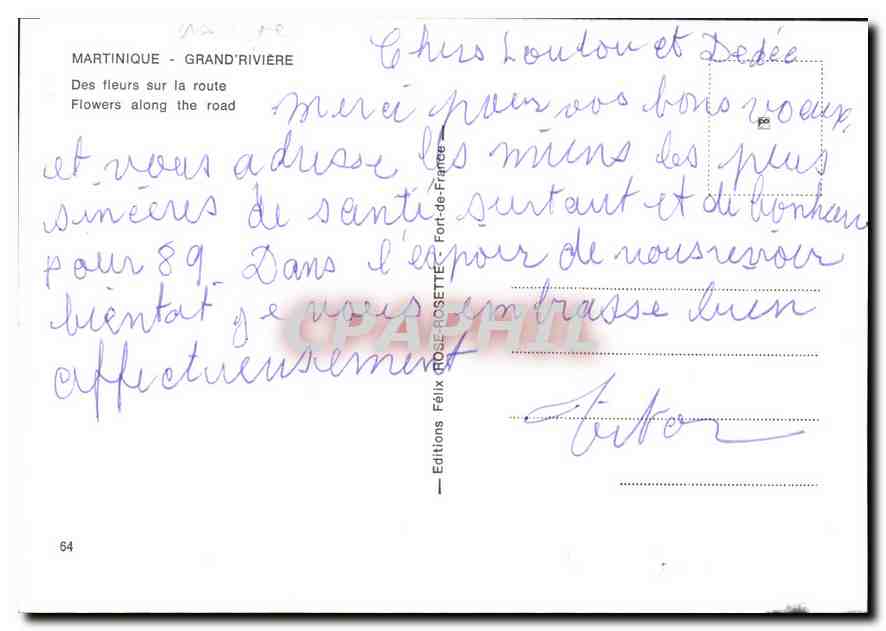 MARTINIQUE - GRAND'RIVIÈRE
Des fleurs sur la route
Flowers along the road
Chers Loulou et Dédée
Merci pour vos bons voeux,
et vous adresse les miens les plus
sincères de santé surtout et de bonheur
pour 89. Dans l'espoir de nous revoir
bientot je vous embrasse bien
affectueusement
— Editions Félix ROSE-ROSETTE - Fort-de-France —
CPAPHIL
64